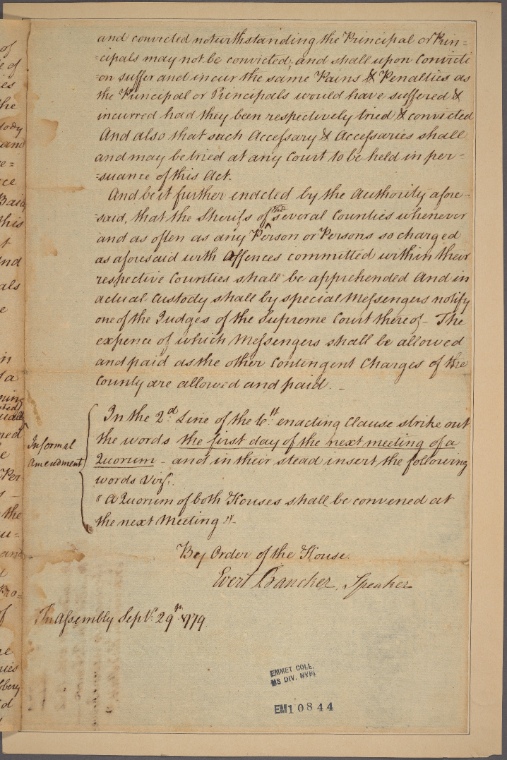 and convicted notwithstanding the Principal or Prin-
cipals may not be convicted; and shall upon Convicti
on suffer and incur the same Pains & Penalties as
the Principal or Principals would have suffered &
incurred had they been respectively tried & convicted
And also that such Accessary & Accessaries shall
and may be tried at any Court to be held in per-
-suance of this Act.
And be it further enacted by the Authority afore-
said, that the Sherifs of the several Counties whenever
and as often as any Person or Persons so charged
as aforesaid with Offences committed within their
respective Counties shall be apprehended and in
actual Custody shall by special Messengers notify
one of the Judges of the Supreme Court thereof - The
expence of which Messengers shall be allowed
and paid as the other Contingent Charges of the
County are allowed and paid. -
Informal
Amendment
In the 2d Line of the 6th enacting Clause strike out
the words the first day of the next meeting of a
Quorum - and in their stead insert the following
words Viz.
"A Quorum of both Houses shall be convened at
the next Meeting".
By Order of the House
Evert Bancker, Speaker
In Assembly Sept. 29th 1779
EMMET COLL.
MS DIV. NYPL
EM10844